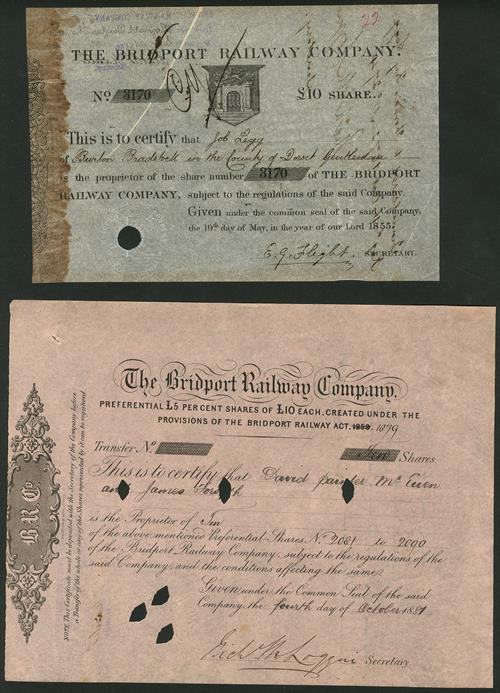 22
THE BRIDPORT RAILWAY COMPANY.
No. 3170 £10 SHARE.
This is to certify that Job Legg
of Burton Bradstock in the County of Dorset Gentleman
is the proprietor of the share number 3170 of THE BRIDPORT
RAILWAY COMPANY, subject to the regulations of the said Company.
Given under the common seal of the said Company,
the 19th day of May, in the year of our Lord 1855.
E. G. Flight. SECRETARY.
The Bridport Railway Company.
PREFERENTIAL £5 PER CENT SHARES OF £10 EACH, CREATED UNDER THE
PROVISIONS OF THE BRIDPORT RAILWAY ACT. 1859. 1879
Transfer No. Ten Shares.
This is to certify that David Painter McEuen
and James
is the Proprietor of Ten
of the above mentioned Preferential Shares No. 2081 to 2090
of the Bridport Railway Company, subject to the regulations of the
said Company, and the conditions affecting the same.
Given under the Common Seal of the said
Company, the fourth day of October 1881
Secretary.
B. R. Co.
NOTE This Certificate must be deposited with the Secretary of the Company before
a Transfer of the whole or any of the Shares represented by it can be registered.